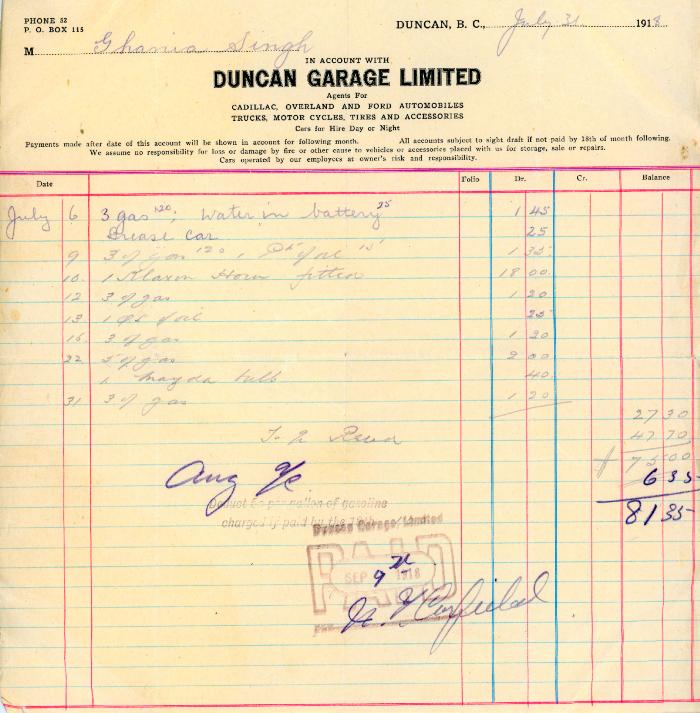 PHONE 52
P. O. BOX 115
DUNCAN, B. C., July 31 1918
M Ghania Singh
IN ACCOUNT WITH
DUNCAN GARAGE LIMITED
Agents For
CADILLAC, OVERLAND AND FORD AUTOMOBILES
TRUCKS, MOTOR CYCLES, TIRES AND ACCESSORIES
Cars for Hire Day or Night
Payments made after date of this account will be shown in account for following month. All accounts subject to sight draft if not paid by 18th of month following.
We assume no responsibility for loss or damage by fire or other cause to vehicles or accessories placed with us for storage, sale or repairs.
Cars operated by our employees at owner's risk and responsibility.
Date Folio Dr. Cr. Balance
July 6 3 gas 120; Water in battery 25 1 45
Grease car 25
9 3 g gas 120, 1 Qt oil 15 1 35
10 1 Klaxon Horn fitted 18 00
12 3 g gas 1 20
13 1 Qt oil 25
16 3 g gas 1 20
22 5 g gas 2 00
1 Mazda bulb 40
31 3 g gas 1 20
27 30
47 70
75 00
Aug a/c 6 35
81 35
Deduct 5c per gallon of gasoline
charged if paid by the 10th
Duncan Garage Limited
PAID
SEP 9th 1918